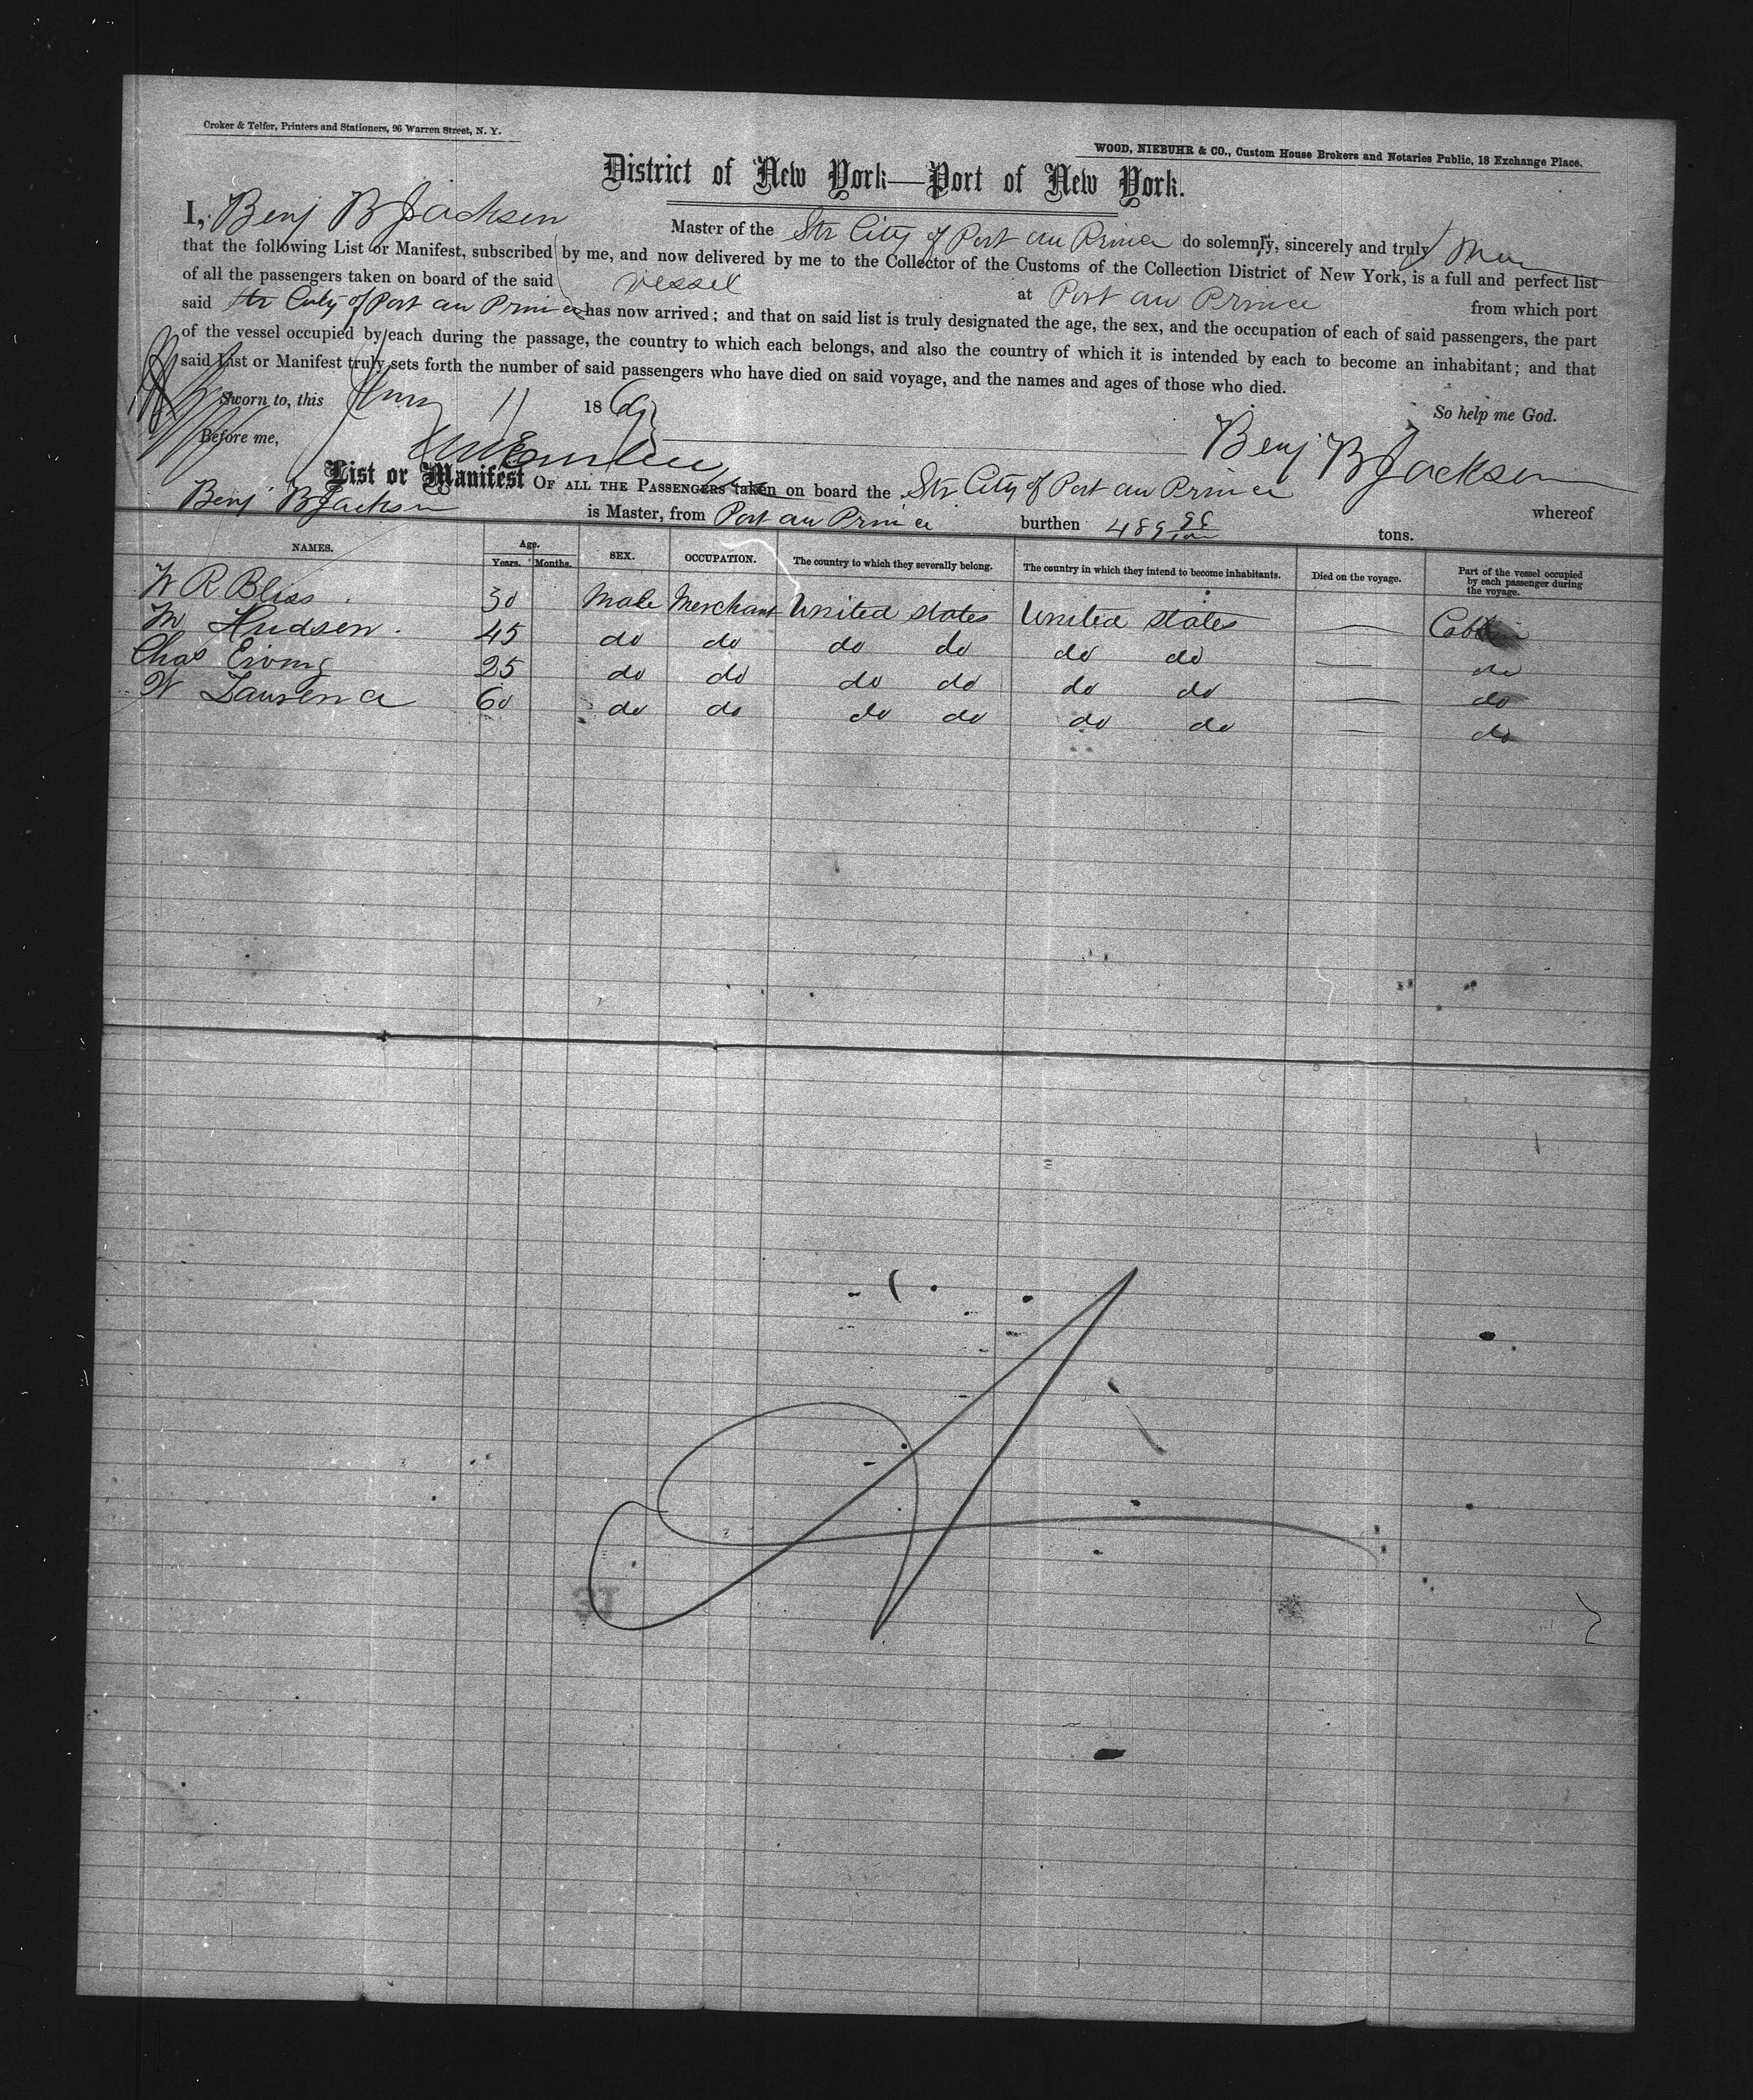 Croker & Telfer, Printers and Stationers, 96 Warren Street, N. Y.
WOOD, NIEBUHR & CO., Custom House Brokers and Notaries Public, 18 Exchange Place.
District of New York—Port of New York.
I, Benj B Jackson Master of the Str City of Port au Prince do solemnly, sincerely and truly
that the following List or Manifest, subscribed by me, and now delivered by me to the Collector of the Customs of the Collection District of New York, is a full and perfect list
of all the passengers taken on board of the said vessel at Port au Prince from which port
said Str City of Port au Prince has now arrived; and that on said list is truly designated the age, the sex, and the occupation of each of said passengers, the part
of the vessel occupied by each during the passage, the country to which each belongs, and also the country of which it is intended by each to become an inhabitant; and that
said List or Manifest truly sets forth the number of said passengers who have died on said voyage, and the names and ages of those who died.
Sworn to, this 11 1869 So help me God.
Before me, Benj B Jackson
List or Manifest OF ALL THE PASSENGERS taken on board the Str City of Port au Prince whereof
Benj B Jackson is Master, from Port au Prince burthen 489 tons.
NAMES. Age. Years. Months. SEX. OCCUPATION. The country to which they severally belong. The country in which they intend to become inhabitants. Died on the voyage. Part of the vessel occupied by each passenger during the voyage.
W R Bliss 30 Male Merchant United States United States — Cabin
M Hudson 45 do do do do do do — do
Chas 25 do do do do do do — do
W Laurence 60 do do do do do do — do